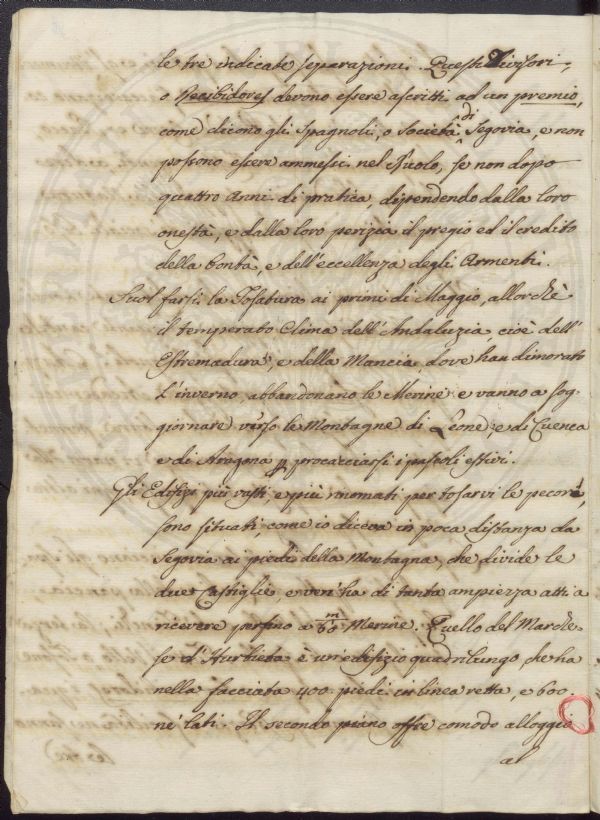 le tre indicate separazioni. Questi Divisori,
o Recibidores devono essere ascritti ad un premio,
come dicono gli Spagnoli, o Società di Segovia, e non
possono essere ammessi nel Ruolo, se non dopo
quattro Anni di pratica, dipendendo dalla loro
onestà, e dalla loro perizia il pregio ed il credito
della bontà, e dell'eccellenza degli Armenti.
Suol farsi la Tosatura ai primi di Maggio, allorchè
il temperato Clima dell'Andaluzia, cioè dell'
Estremadura, e della Mancia, dove han dimorato
l'inverno, abbandonano le Merine e vanno a sog-
giornare verso le Montagne di Leone, e di Cuenca
e di Aragona p procacciarsi i pascoli estivi.
Gli Edifizi più vasti, e più rinomati per tosarvi le pecore,
sono situati, come io diceva in poca distanza da
Segovia ai piedi della Montagna, che divide le
due Castiglie e ven'ha di tanta ampiezza atti a
ricevere persino a m/60 Merine. Quello del Marche-
se d'Hurtieta è un'edifizio quadrilungo che ha
nella facciata 400 piedi in linea retta, e 600
ne' lati. Il secondo piano offre comodo alloggio
al